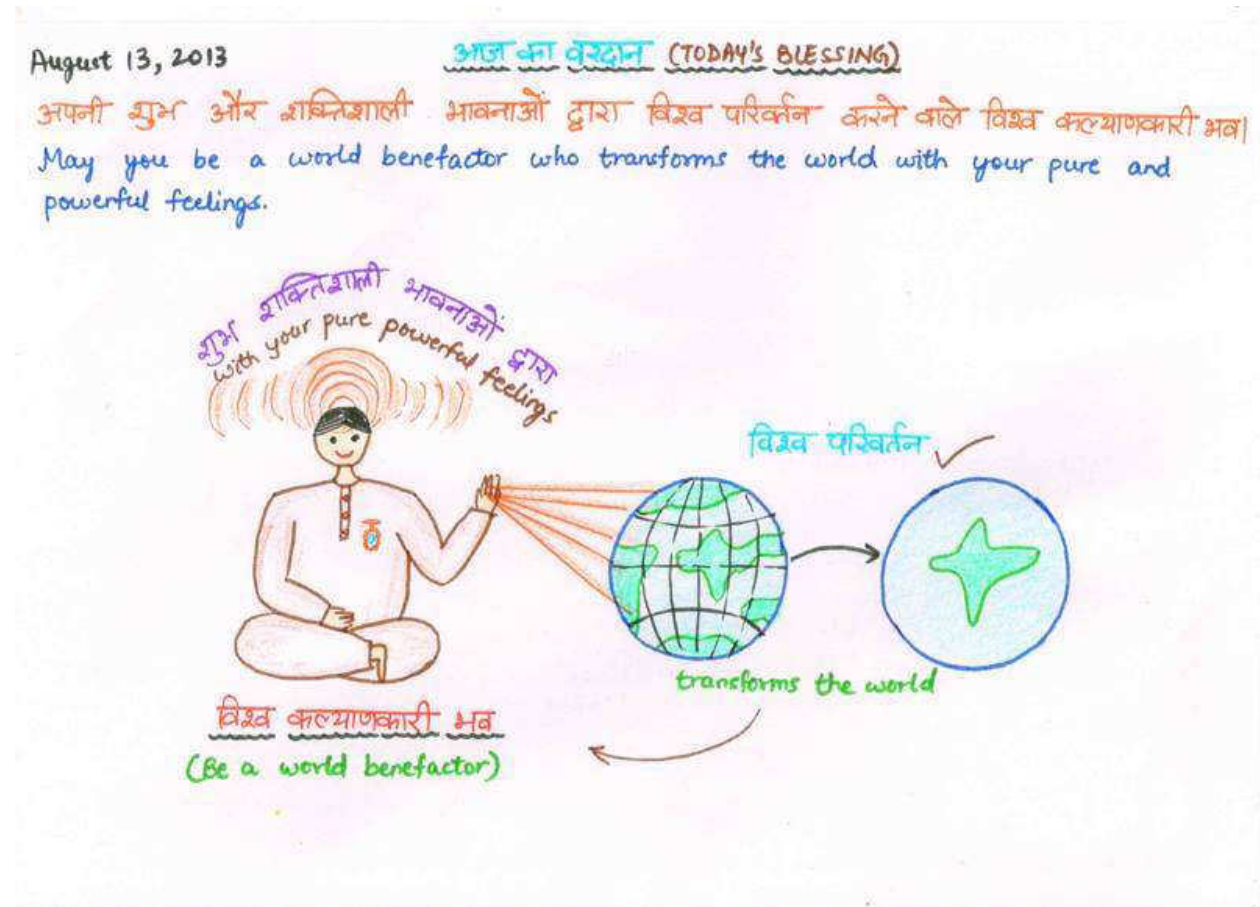 August 13, 2013
आज का वरदान (TODAY'S BLESSING)
अपनी शुभ और शक्तिशाली भावनाओं द्वारा विश्व परिवर्तन करने वाले विश्व कल्याणकारी भव।
May you be a world benefactor who transforms the world with your pure and
powerful feelings.
शुभ शक्तिशाली भावनाओं द्वारा
with your pure powerful feelings
विश्व परिवर्तन
transforms the world
विश्व कल्याणकारी भव
(Be a world benefactor)